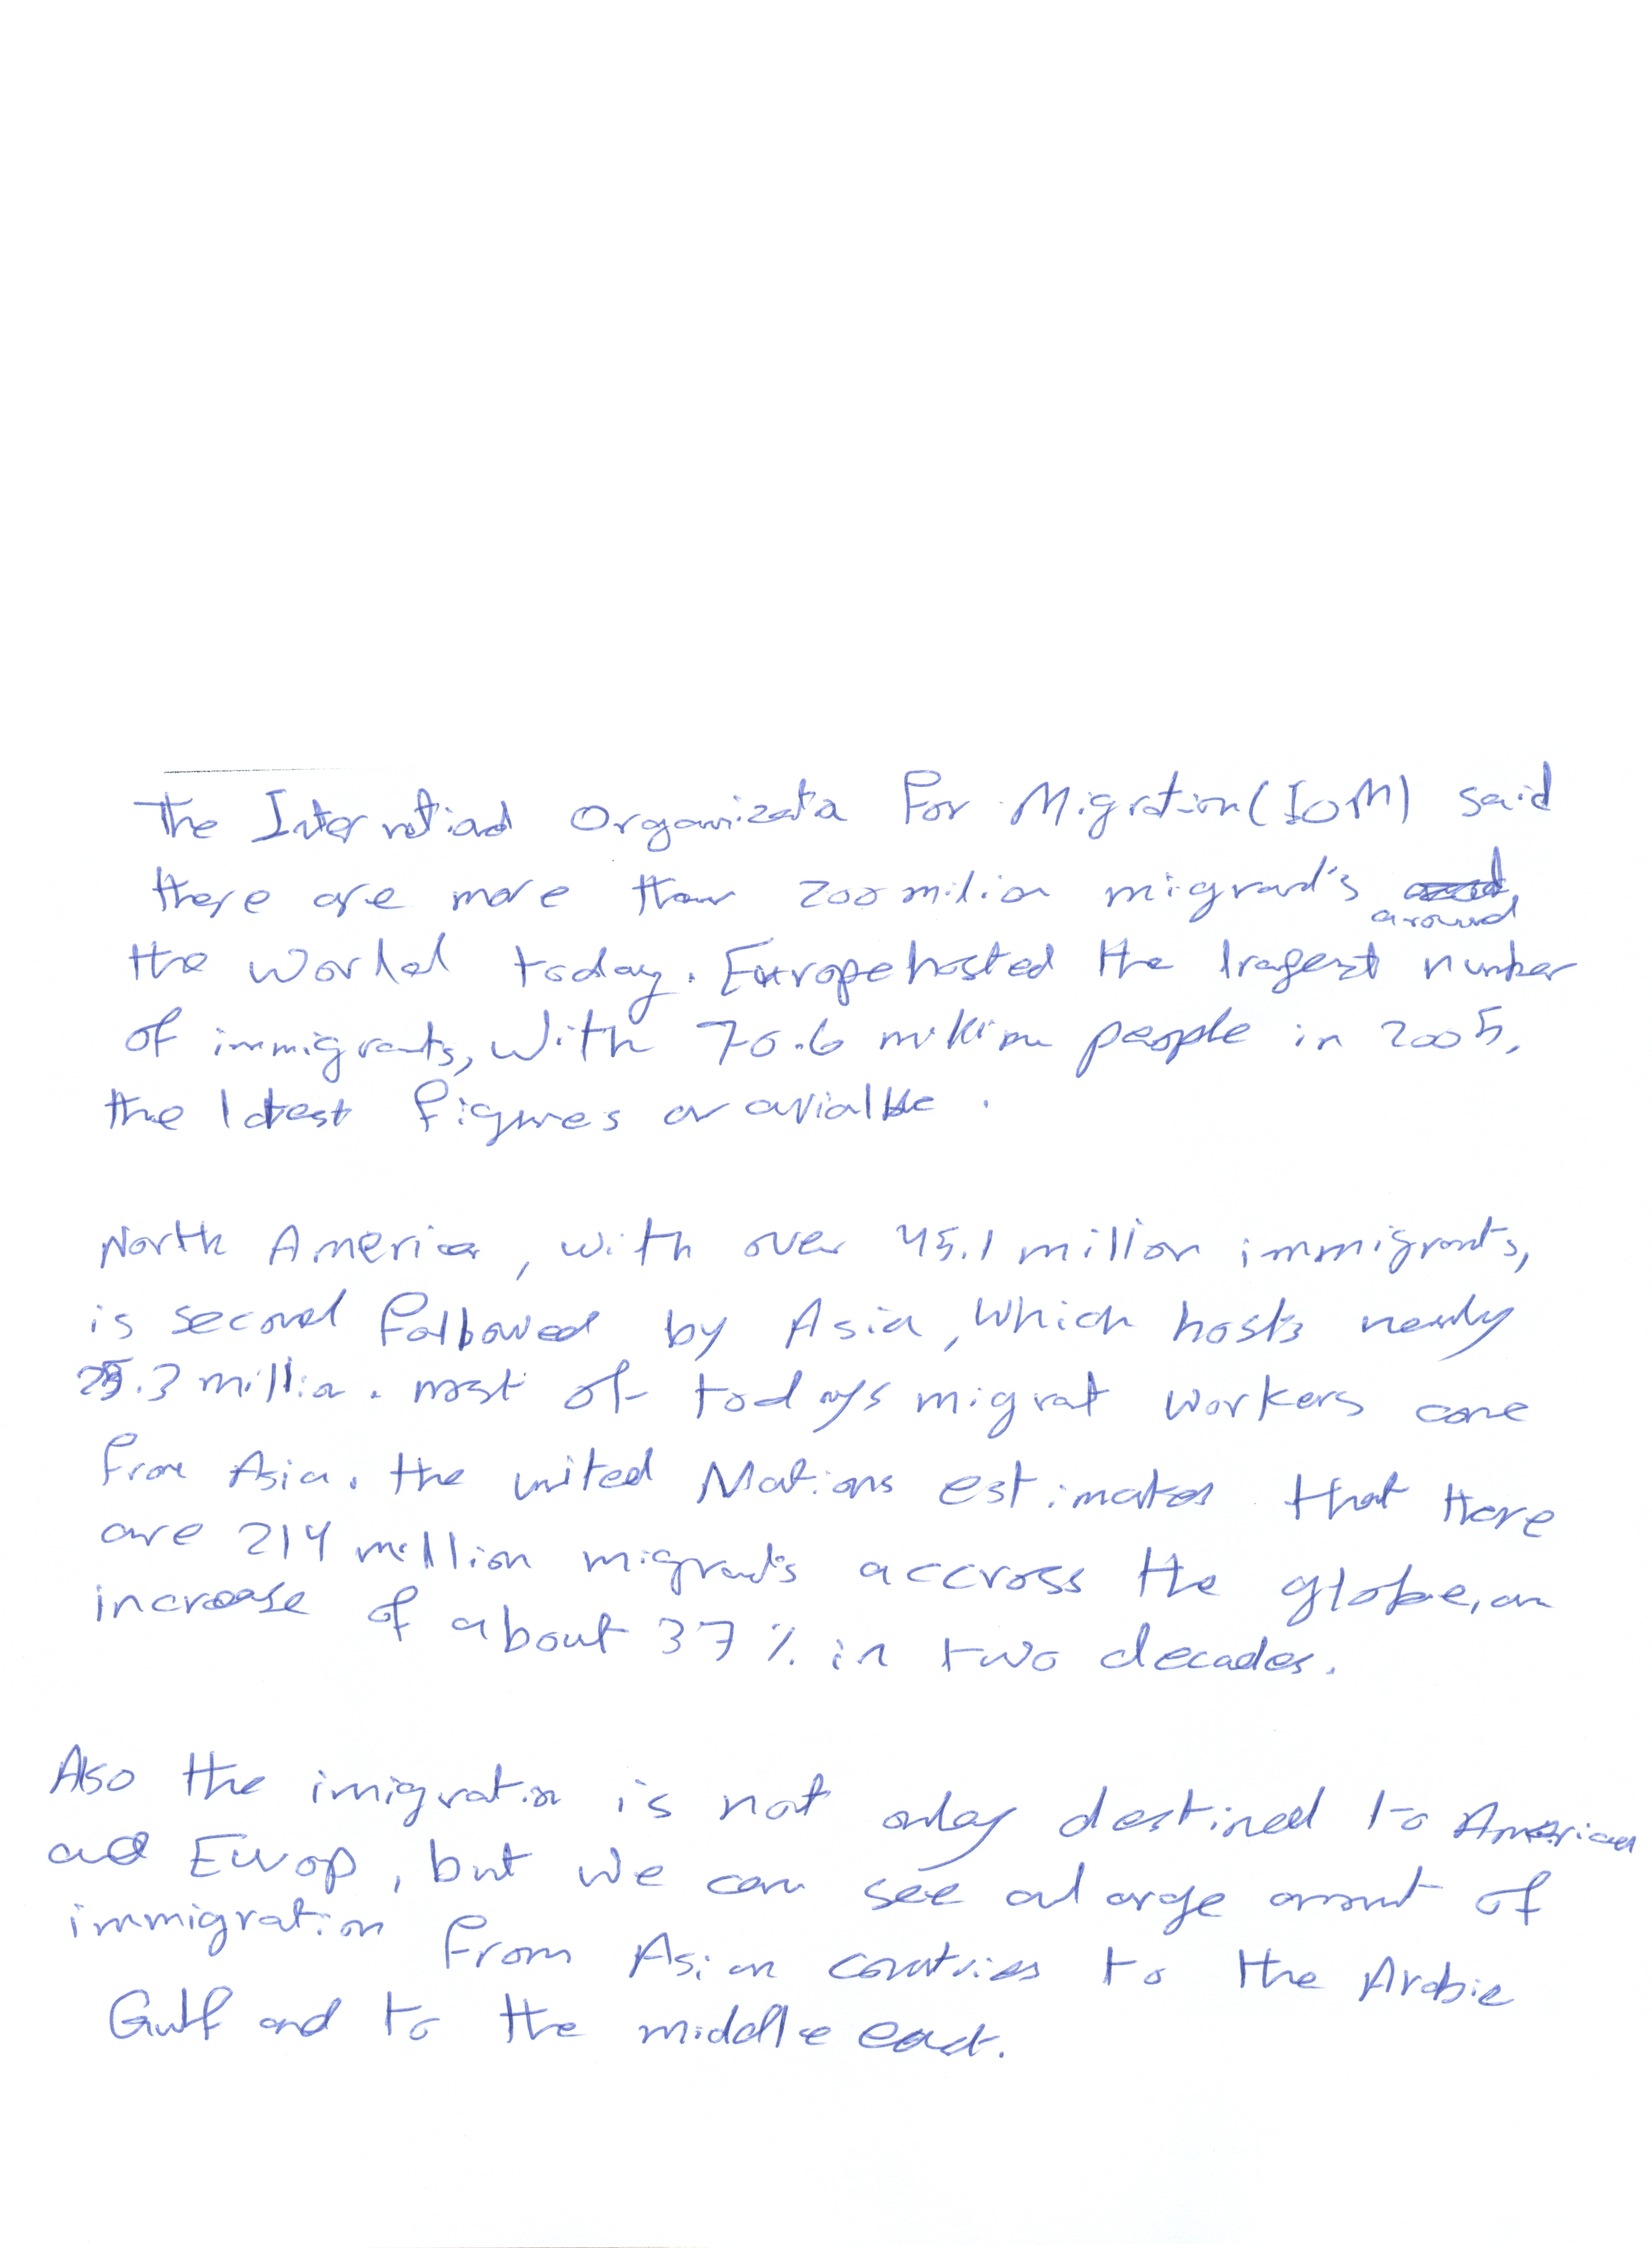 The International Organization For Migration (IOM) said
there are more than 200 milion migrants around
the World today. Europe hosted the lragest number
of immigrants, With 70.6 million people in 2005,
the latest figures ar avialble.
North America, with over 45.1 million immigrants,
is second followed by Asia, which hosts nearly
25.3 million. most of todays migrat workers come
from Asia. the united Nations estimates that there
are 214 million migrants accross the globe, an
increase of about 37% in two decades.
Also the imigration is not only destined to American
and Europ, but we can see a large amont of
immigration from Asian countries to the Arabic
Gulf and to the middle east.